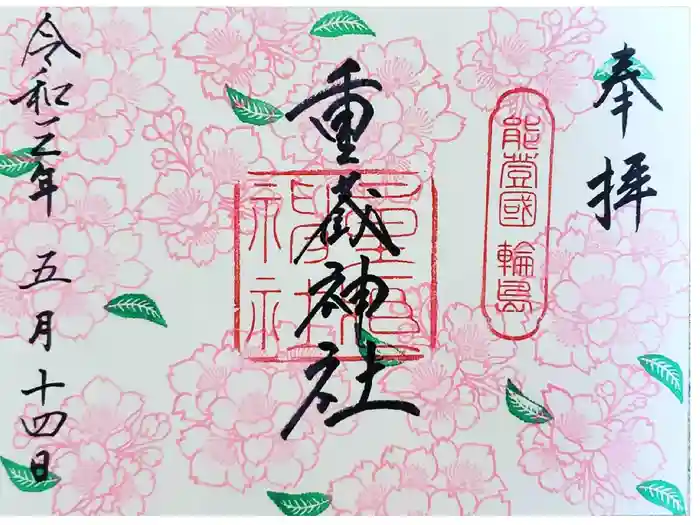 奉拝
能登國 輪島
重蔵神社
重蔵神社
令和三年 五月十四日